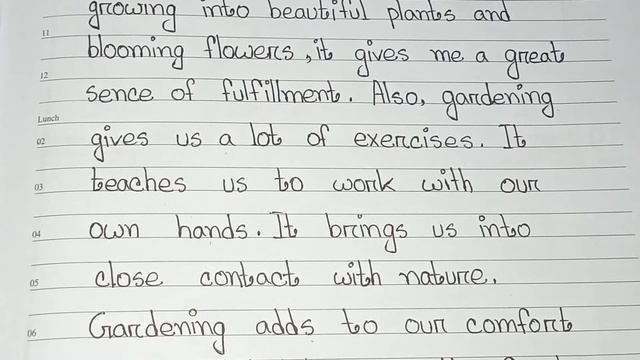 growing into beautiful plants and
11
blooming flowers, it gives me a great
12
sence of fulfillment. Also, gardening
Lunch
02 gives us a lot of exercises. It
03 teaches us to work with our
04 own hands. It brings us into
05 close contact with nature.
06 Gardening adds to our comfort